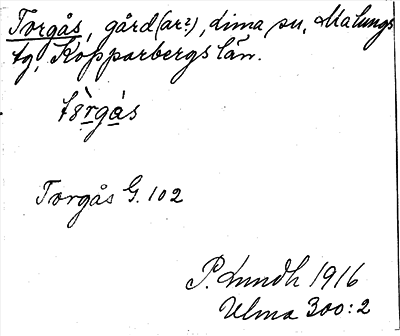 Torgås, gård(ar?), Lima sn, Malungs
tg, Kopparbergs län.
Torgås G. 102
P. Lundh 1916
Ulma 300:2